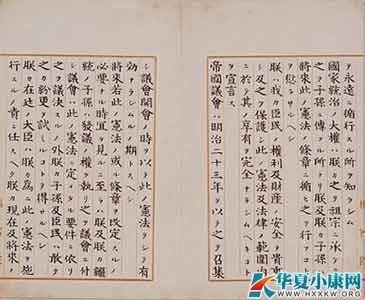 ヲ永遠ニ循行スル所ヲ知ラシム
國家統治ノ大權ハ朕カ之ヲ祖宗ニ承ケテ
之ヲ子孫ニ傳フル所ナリ朕及朕カ子孫ハ
將來此ノ憲法ノ條章ニ循ヒ之ヲ行フコト
ヲ愆ラサルヘシ
朕ハ我カ臣民ノ權利及財産ノ安全ヲ貴重
シ及之ヲ保護シ此ノ憲法及法律ノ範圍内
ニ於テ其ノ享有ヲ完全ナラシムヘキコト
ヲ宣言ス
帝國議會ハ明治二十三年ヲ以テ之ヲ召集
シ議會開會ノ時ヲ以テ此ノ憲法ヲシテ有
効ナラシムルノ期トスヘシ
將來若此ノ憲法ノ或ル條章ヲ改定スルノ
必要ナル時宜ヲ見ルニ至ラハ朕及朕カ繼
統ノ子孫ハ發議ノ權ヲ執リ之ヲ議會ニ付
シ議會ハ此ノ憲法ニ定メタル要件ニ依リ
之ヲ議決スルノ外朕カ子孫及臣民ハ敢テ
之カ紛更ヲ試ミルコトヲ得サルヘシ
朕カ在廷ノ大臣ハ朕カ爲ニ此ノ憲法ヲ施
行スルノ責ニ任スヘク朕カ現在及將來ノ
华夏小康网
WWW.HXXKW.ORG